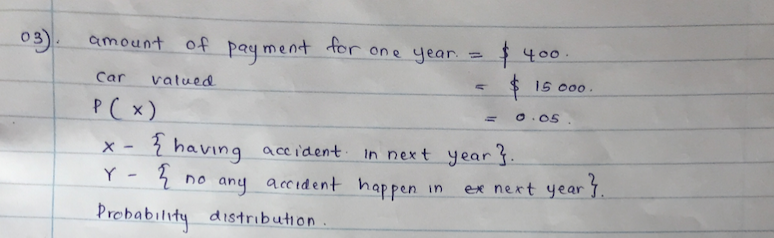 03). amount of payment for one year. = $ 400.
car valued = $ 15 000.
P(x) = 0.05.
x - { having accident in next year }.
Y - { no any accident happen in ex next year }.
Probability distribution.